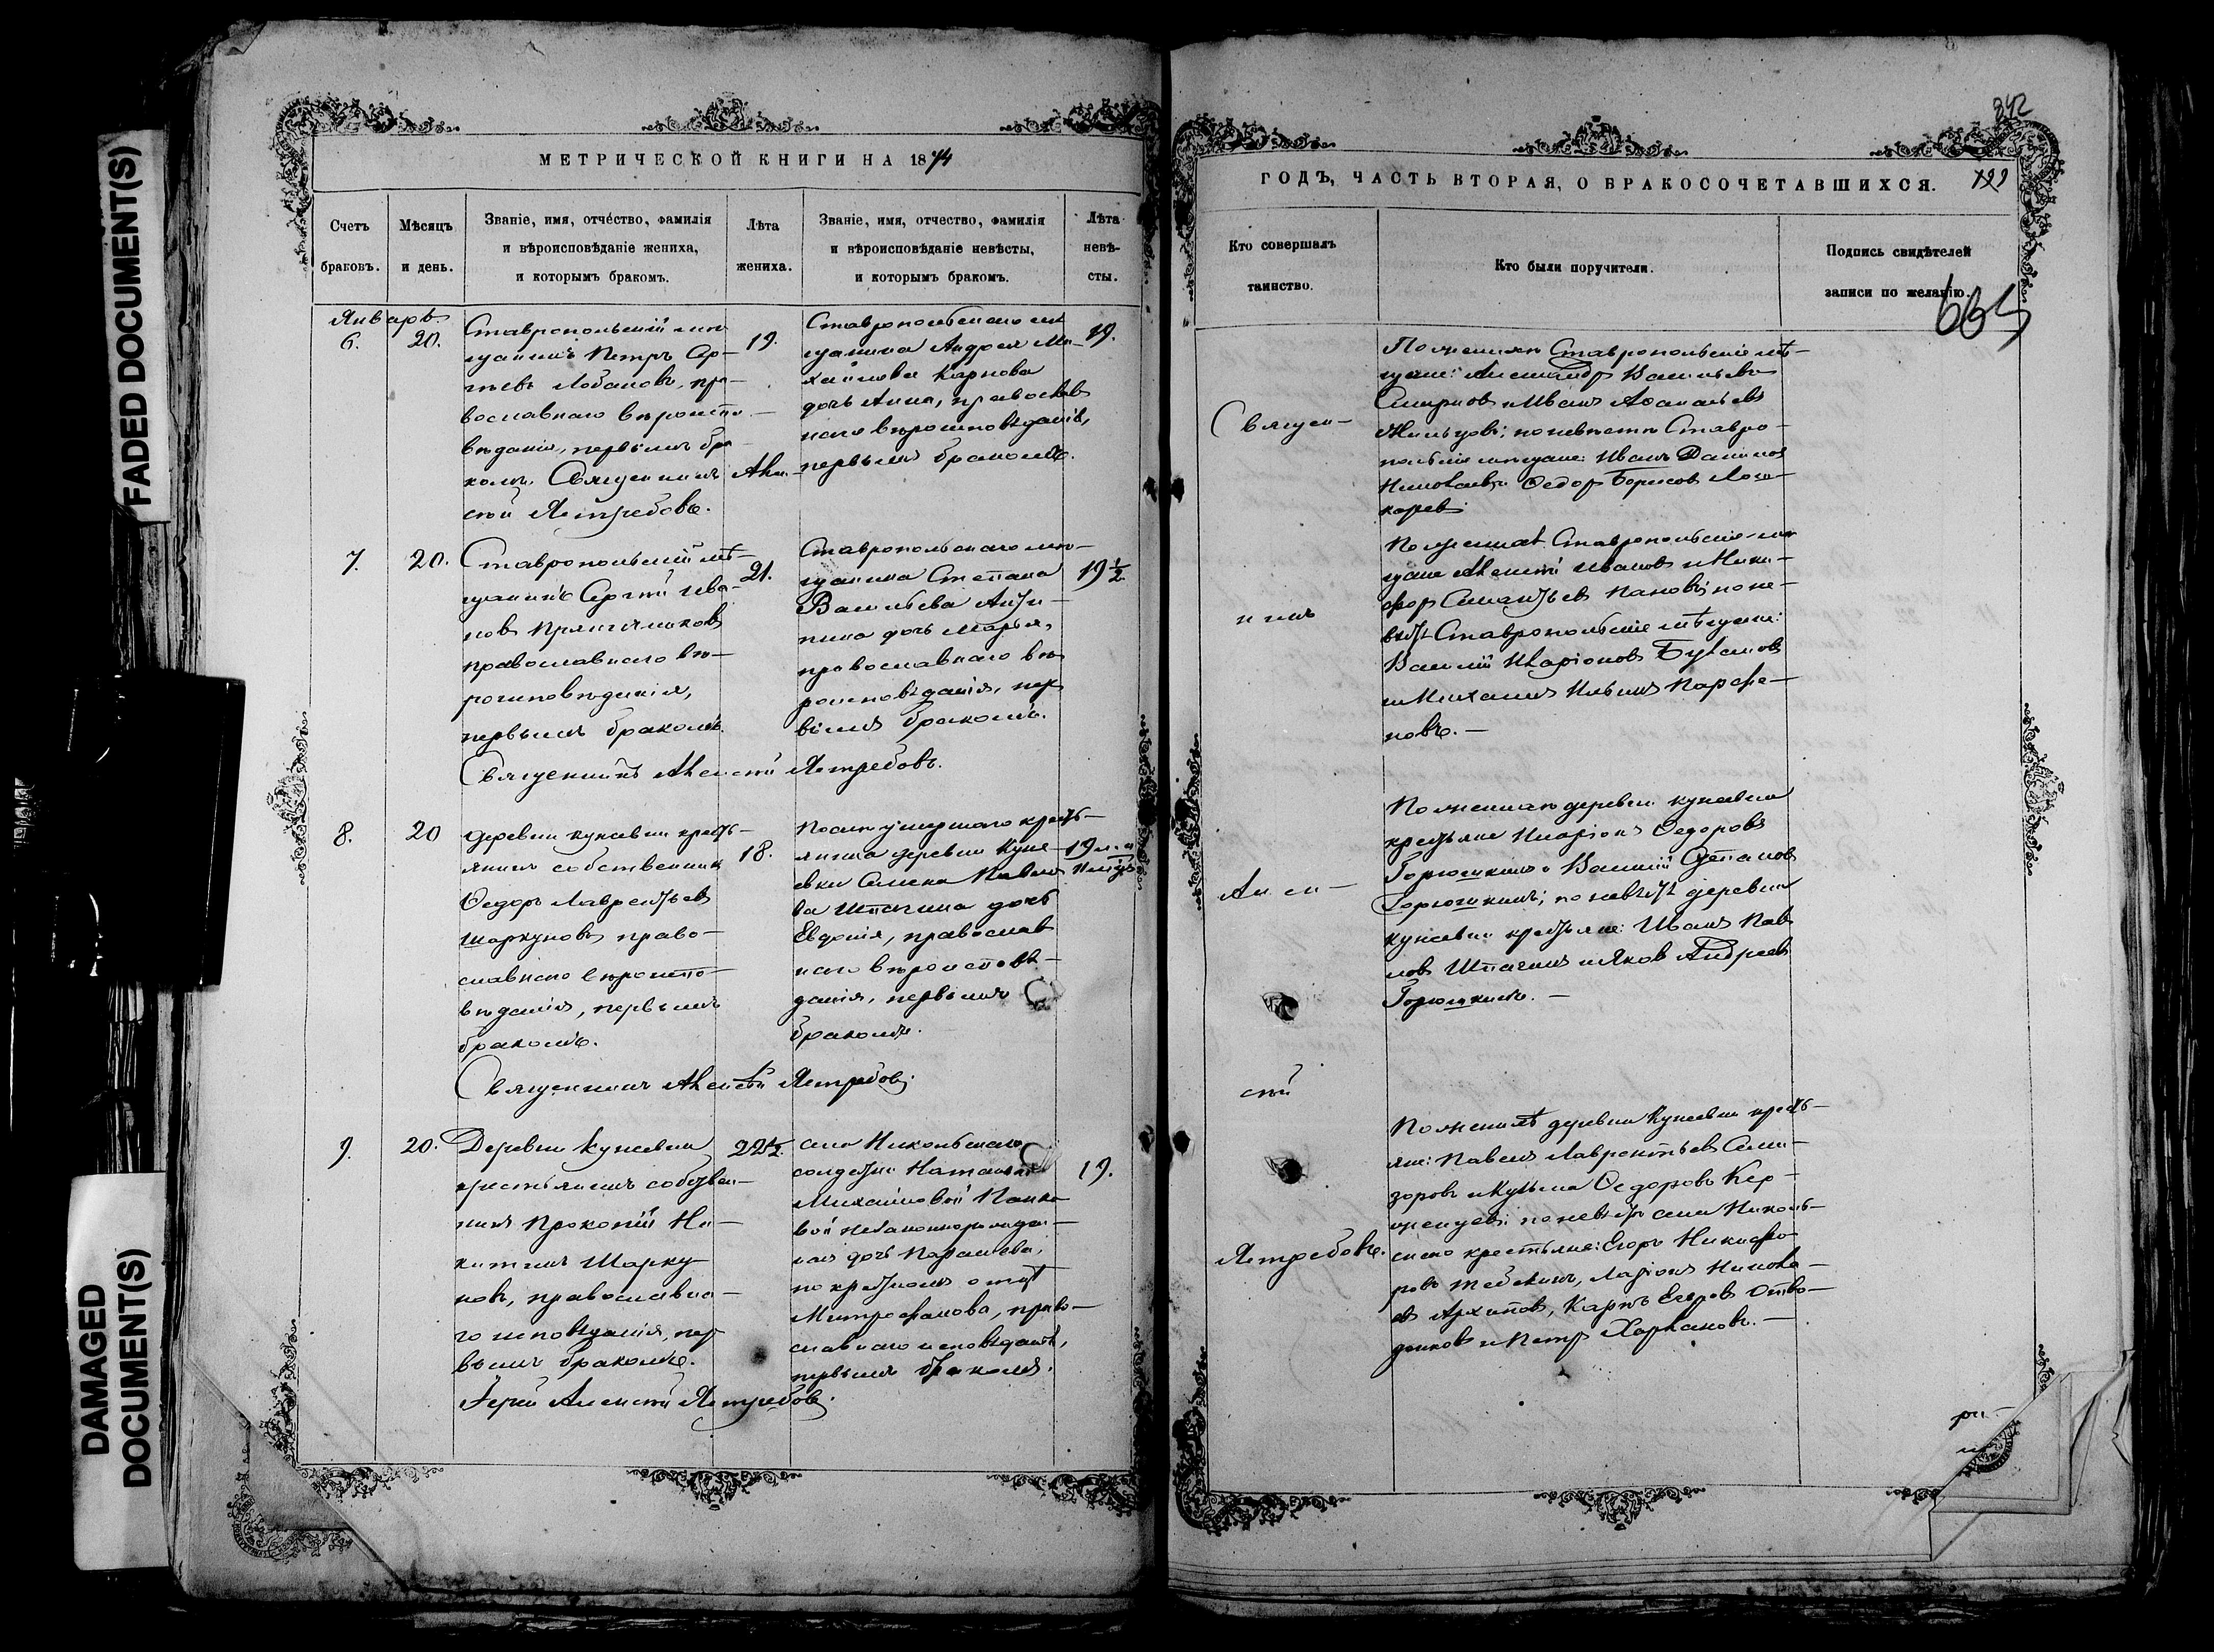 FADED DOCUMENT(S)
DAMAGED
DOCUMENT(S)
МЕТРИЧЕСКОЙ КНИГИ НА 1874
Счетъ
браковъ.
Мѣсяцъ
и день.
Званіе, имя, отчество, фамилія
и вѣроисповѣданіе жениха,
и которымъ бракомъ.
Лѣта
жениха.
Званіе, имя, отчество, фамилія
и вѣроисповѣданіе невѣсты,
и которымъ бракомъ.
Лѣта
невѣ-
сты.
Январь
6.
20.
Ставропольскій мѣ
щанинъ Петръ Ар-
Лобановъ, пра-
вославнаго вѣроиспо-
вѣданія, первымъ бра
комъ. Священникъ Алек-
сѣй Ястребовъ.
19.
Ставропольскаго мѣ
щанина Андрея Ми-
хайлова Карпова
дочь Анна, православ
наго вѣроисповѣданія,
первымъ бракомъ.
19.
7.
20.
Ставропольскій мѣ-
щанинъ Сергѣй Ива-
новъ Пряничниковъ
православнаго вѣ-
роисповѣданія,
первымъ бракомъ.
Священникъ Алексѣй Ястребовъ.
21.
Ставропольскаго мѣ-
щанина Степана
Васильева Анти-
пина дочь Марья,
православнаго вѣ
роисповѣданія, пер
вымъ бракомъ.
19 1/2
8.
20
Деревни Кунеевки кресть-
янинъ собственникъ
Ѳедоръ Лаврентьевъ
Шаркуновъ право-
славнаго вѣроиспо-
вѣданія, первымъ
бракомъ.
Священникъ Алексѣй Ястребовъ.
18.
Послѣ умершаго кресть-
янина деревни Куне-
евки Семена Павло
ва Шпагина дочь
Евдокія, православ
наго вѣроисповѣ-
данія, первымъ
бракомъ.
19 л. и
9.
20.
Деревни Кунеевки
крестьянинъ собствен-
никъ Прокопій Ни-
китинъ Шарку-
новъ, православна-
го исповѣданія, пер
вымъ бракомъ.
Іерей Алексѣй Ястребовъ.
22 1/2
села Никольскаго
солдатки Натальи
Михайловой Панко
вой незаконнорожден-
ная дочь
по крестному отцѣ
Митрофанова, право-
славнаго исповѣданія,
первымъ бракомъ.
19.
242
ГОДЪ, ЧАСТЬ ВТОРАЯ, О БРАКОСОЧЕТАВШИХСЯ.
199
Кто совершалъ
таинство.
Кто были поручители.
Подпись свидѣтелей
записи по желанію.
665
Священ-
никъ
Алек-
сѣй
Ястребовъ.
По женихѣ Ставропольскіе мѣ-
щане: Александръ Васильевъ
Смирновъ и Иванъ Аѳанасьевъ
Жильцовъ; по невѣстѣ Ставро-
польскіе мѣщане: Иванъ Даниловъ
Николаевъ и Ѳедоръ Борисовъ
По женихѣ Ставропольскіе мѣ
щане Алексѣй Ивановъ и Ники-
форъ Пановъ; по не-
вѣстѣ Ставропольскіе мѣщане:
Василій Иларіоновъ
и Михаилъ Ильинъ Парфе-
новъ. —
По женихѣ деревни Кунеевки
крестьяне Иларіонъ Ѳедоровъ
Горюшкинъ и Василій Степановъ
Горюшкинъ; по невѣстѣ деревни
Кунеевки крестьяне: Иванъ Пав
ловъ Шпагинъ и Яковъ Андреевъ
Горюшкинъ. —
По женихѣ деревни Кунеевки кресть-
яне: Павелъ Лаврентьевъ
и Кузьма Ѳедоровъ Кер-
женцевъ; по невѣстѣ села Николь-
скаго крестьяне: Егоръ Никифо-
ровъ Ларіонъ Никола-
евъ Архиповъ, Карпъ Егоровъ
и Петръ Харлановъ. —